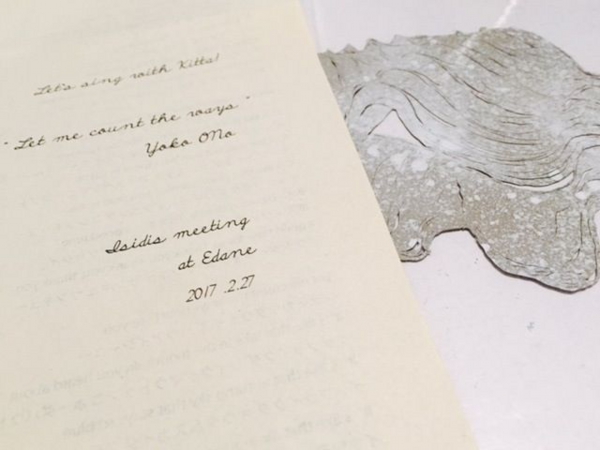 Let's sing with Kitta!
"Let me count the ways"
Yoko ONo
Isidis meeting
at Edane
2017 .2.27